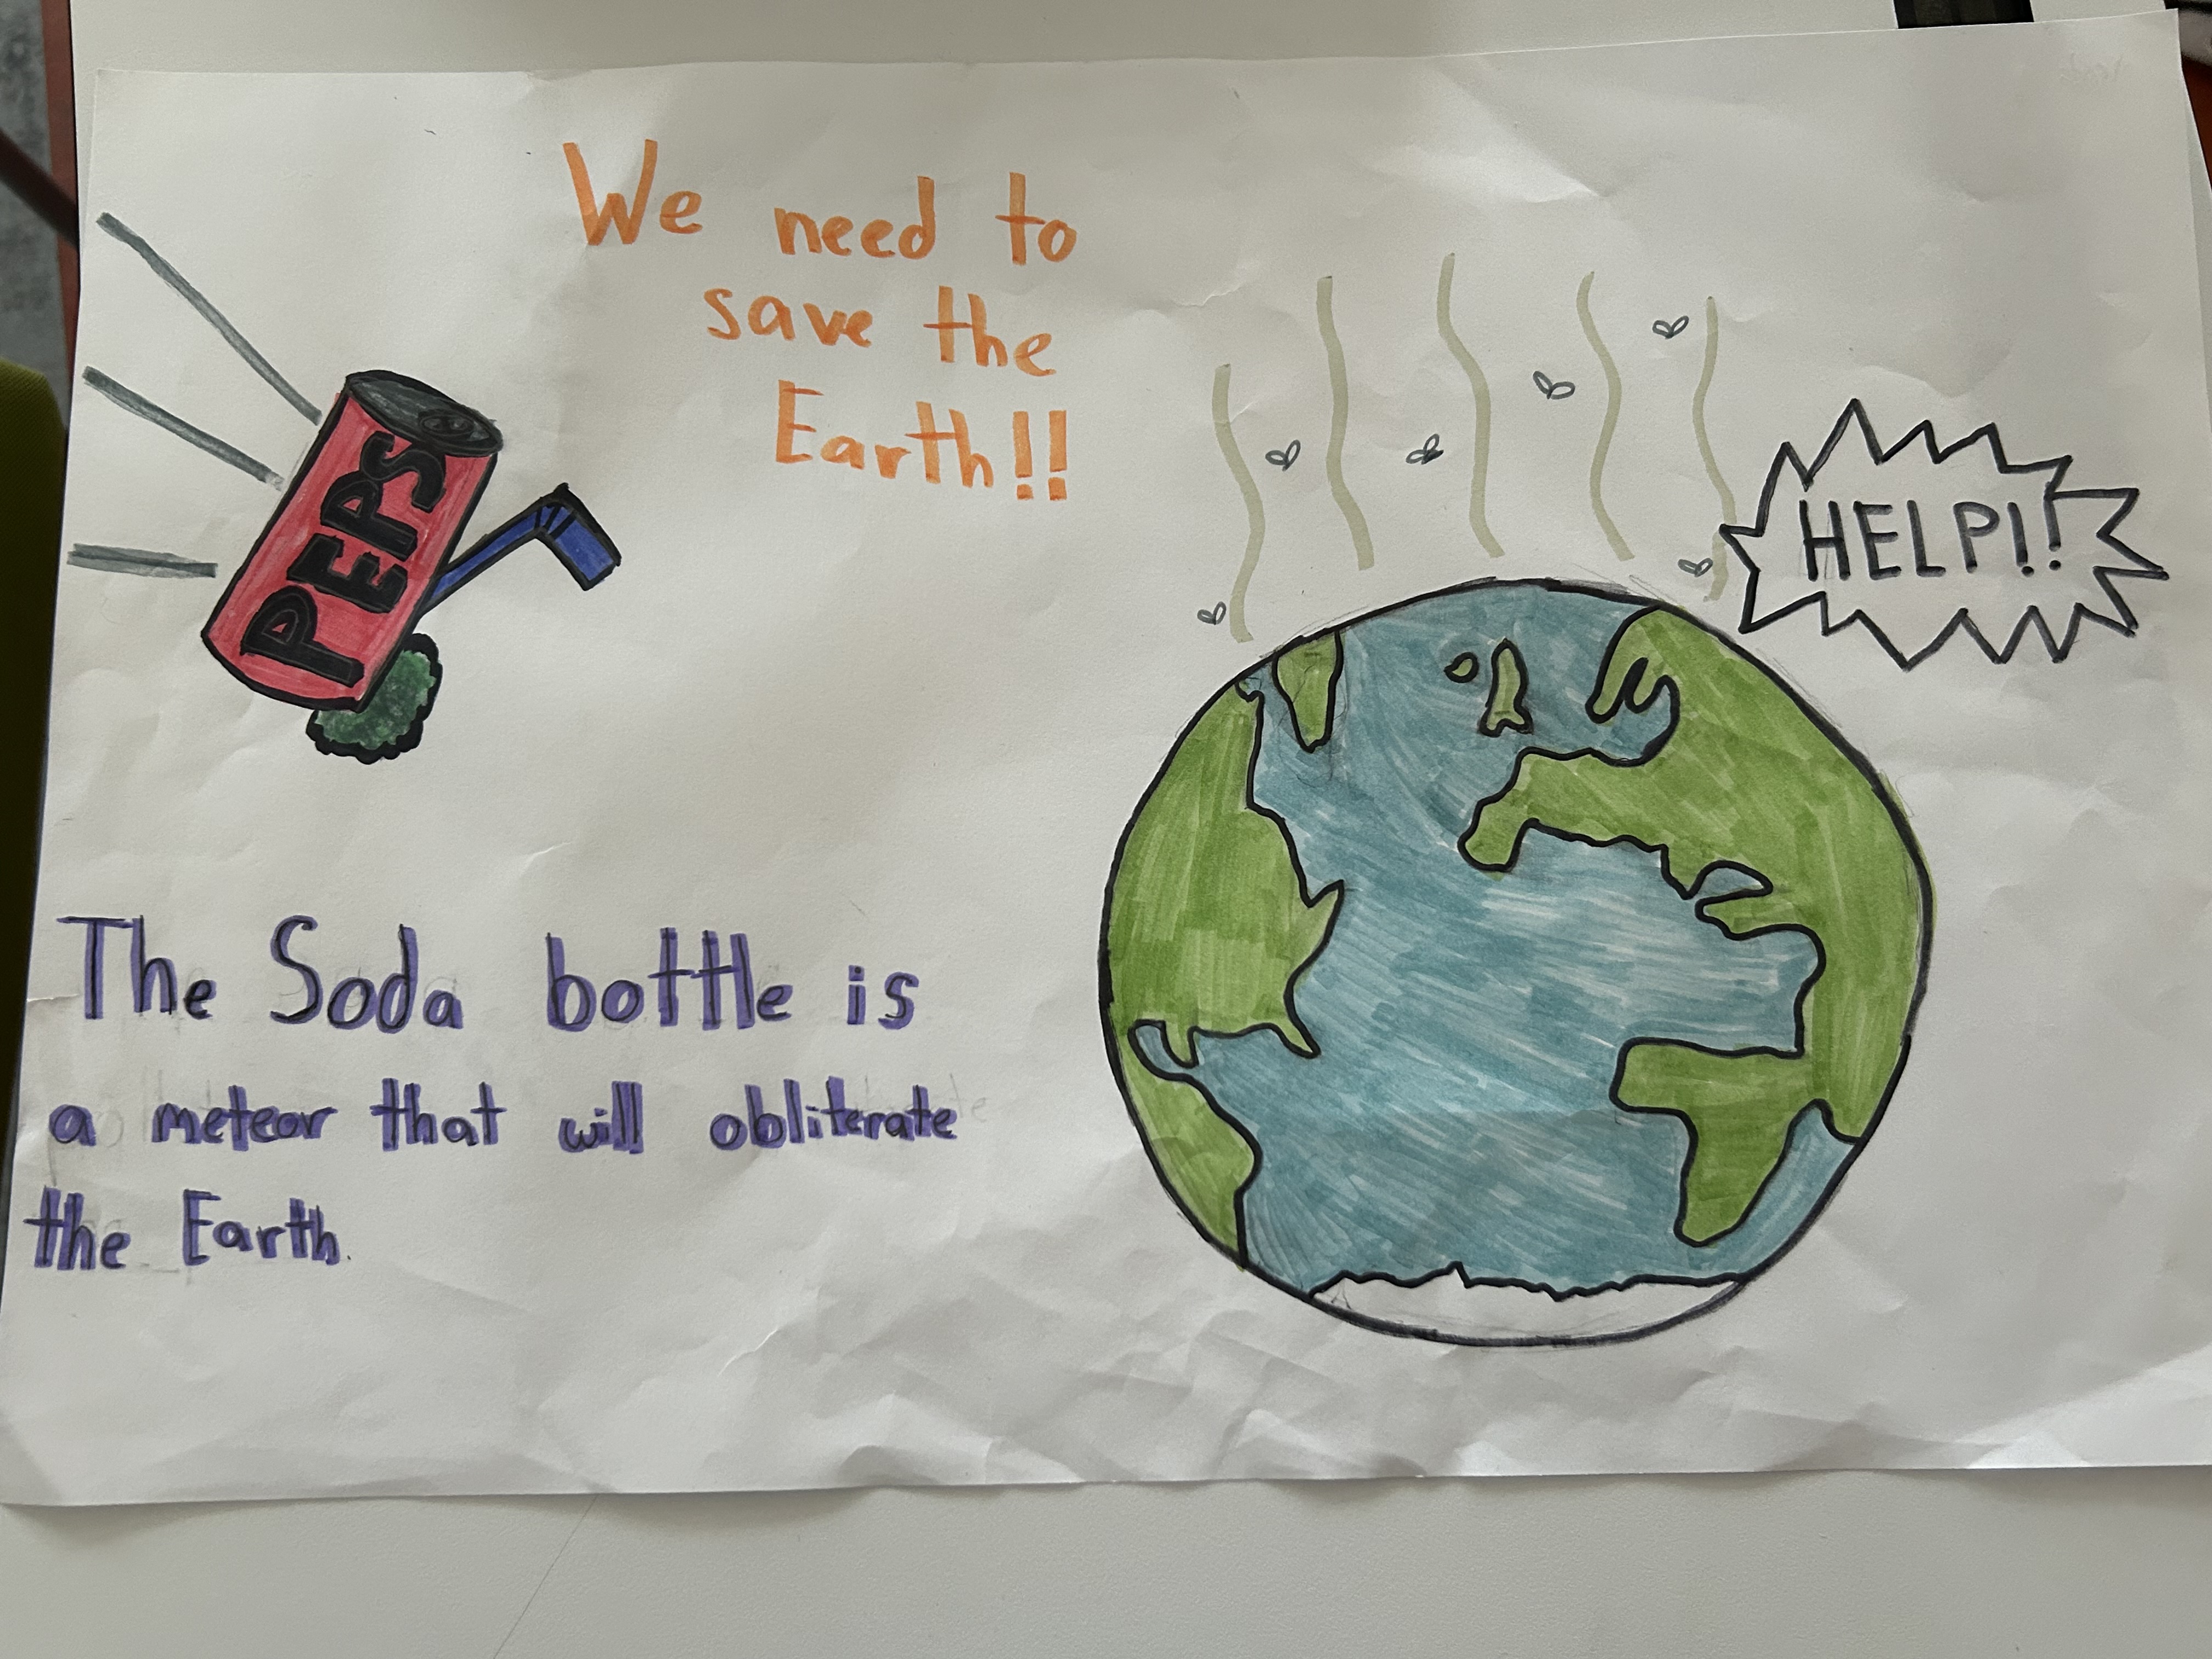 We need to
save the
Earth!!
PEPS
HELP!!
The Soda bottle is
a meteor that will obliterate
the Earth.